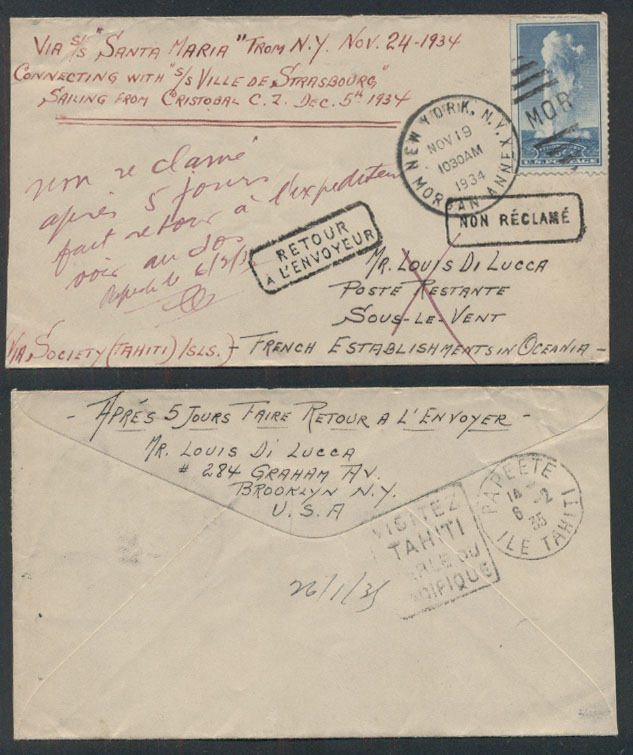 VIA S/S "SANTA MARIA" FROM N.Y. NOV. 24-1934
CONNECTING WITH "S/S VILLE DE STRASBOURG"
SAILING FROM CRISTOBAL C.Z. DEC. 5th 1934
MOR
U.S. POSTAGE
NEW YORK, N.Y.
MORGAN ANNEX
NOV 19
1030AM
1934
non réclamé
après 5 jours
fait retour à l'expéditeur
voir au dos
RETOUR
A L'ENVOYEUR
NON RÉCLAMÉ
MR. LOUIS DI LUCCA
POSTE RESTANTE
SOUS-LE-VENT
VIA SOCIETY (TAHITI) ISLS. - FRENCH ESTABLISHMENTS IN OCEANIA -
- APRÉS 5 JOURS FAIRE RETOUR A L'ENVOYER -
MR. LOUIS DI LUCCA
# 284 GRAHAM AV.
BROOKLYN N.Y.
U.S.A
VISITEZ
TAHITI
PERLE DU
PACIFIQUE
PAPEETE
6 -2
35
ILE TAHITI
26/1/35